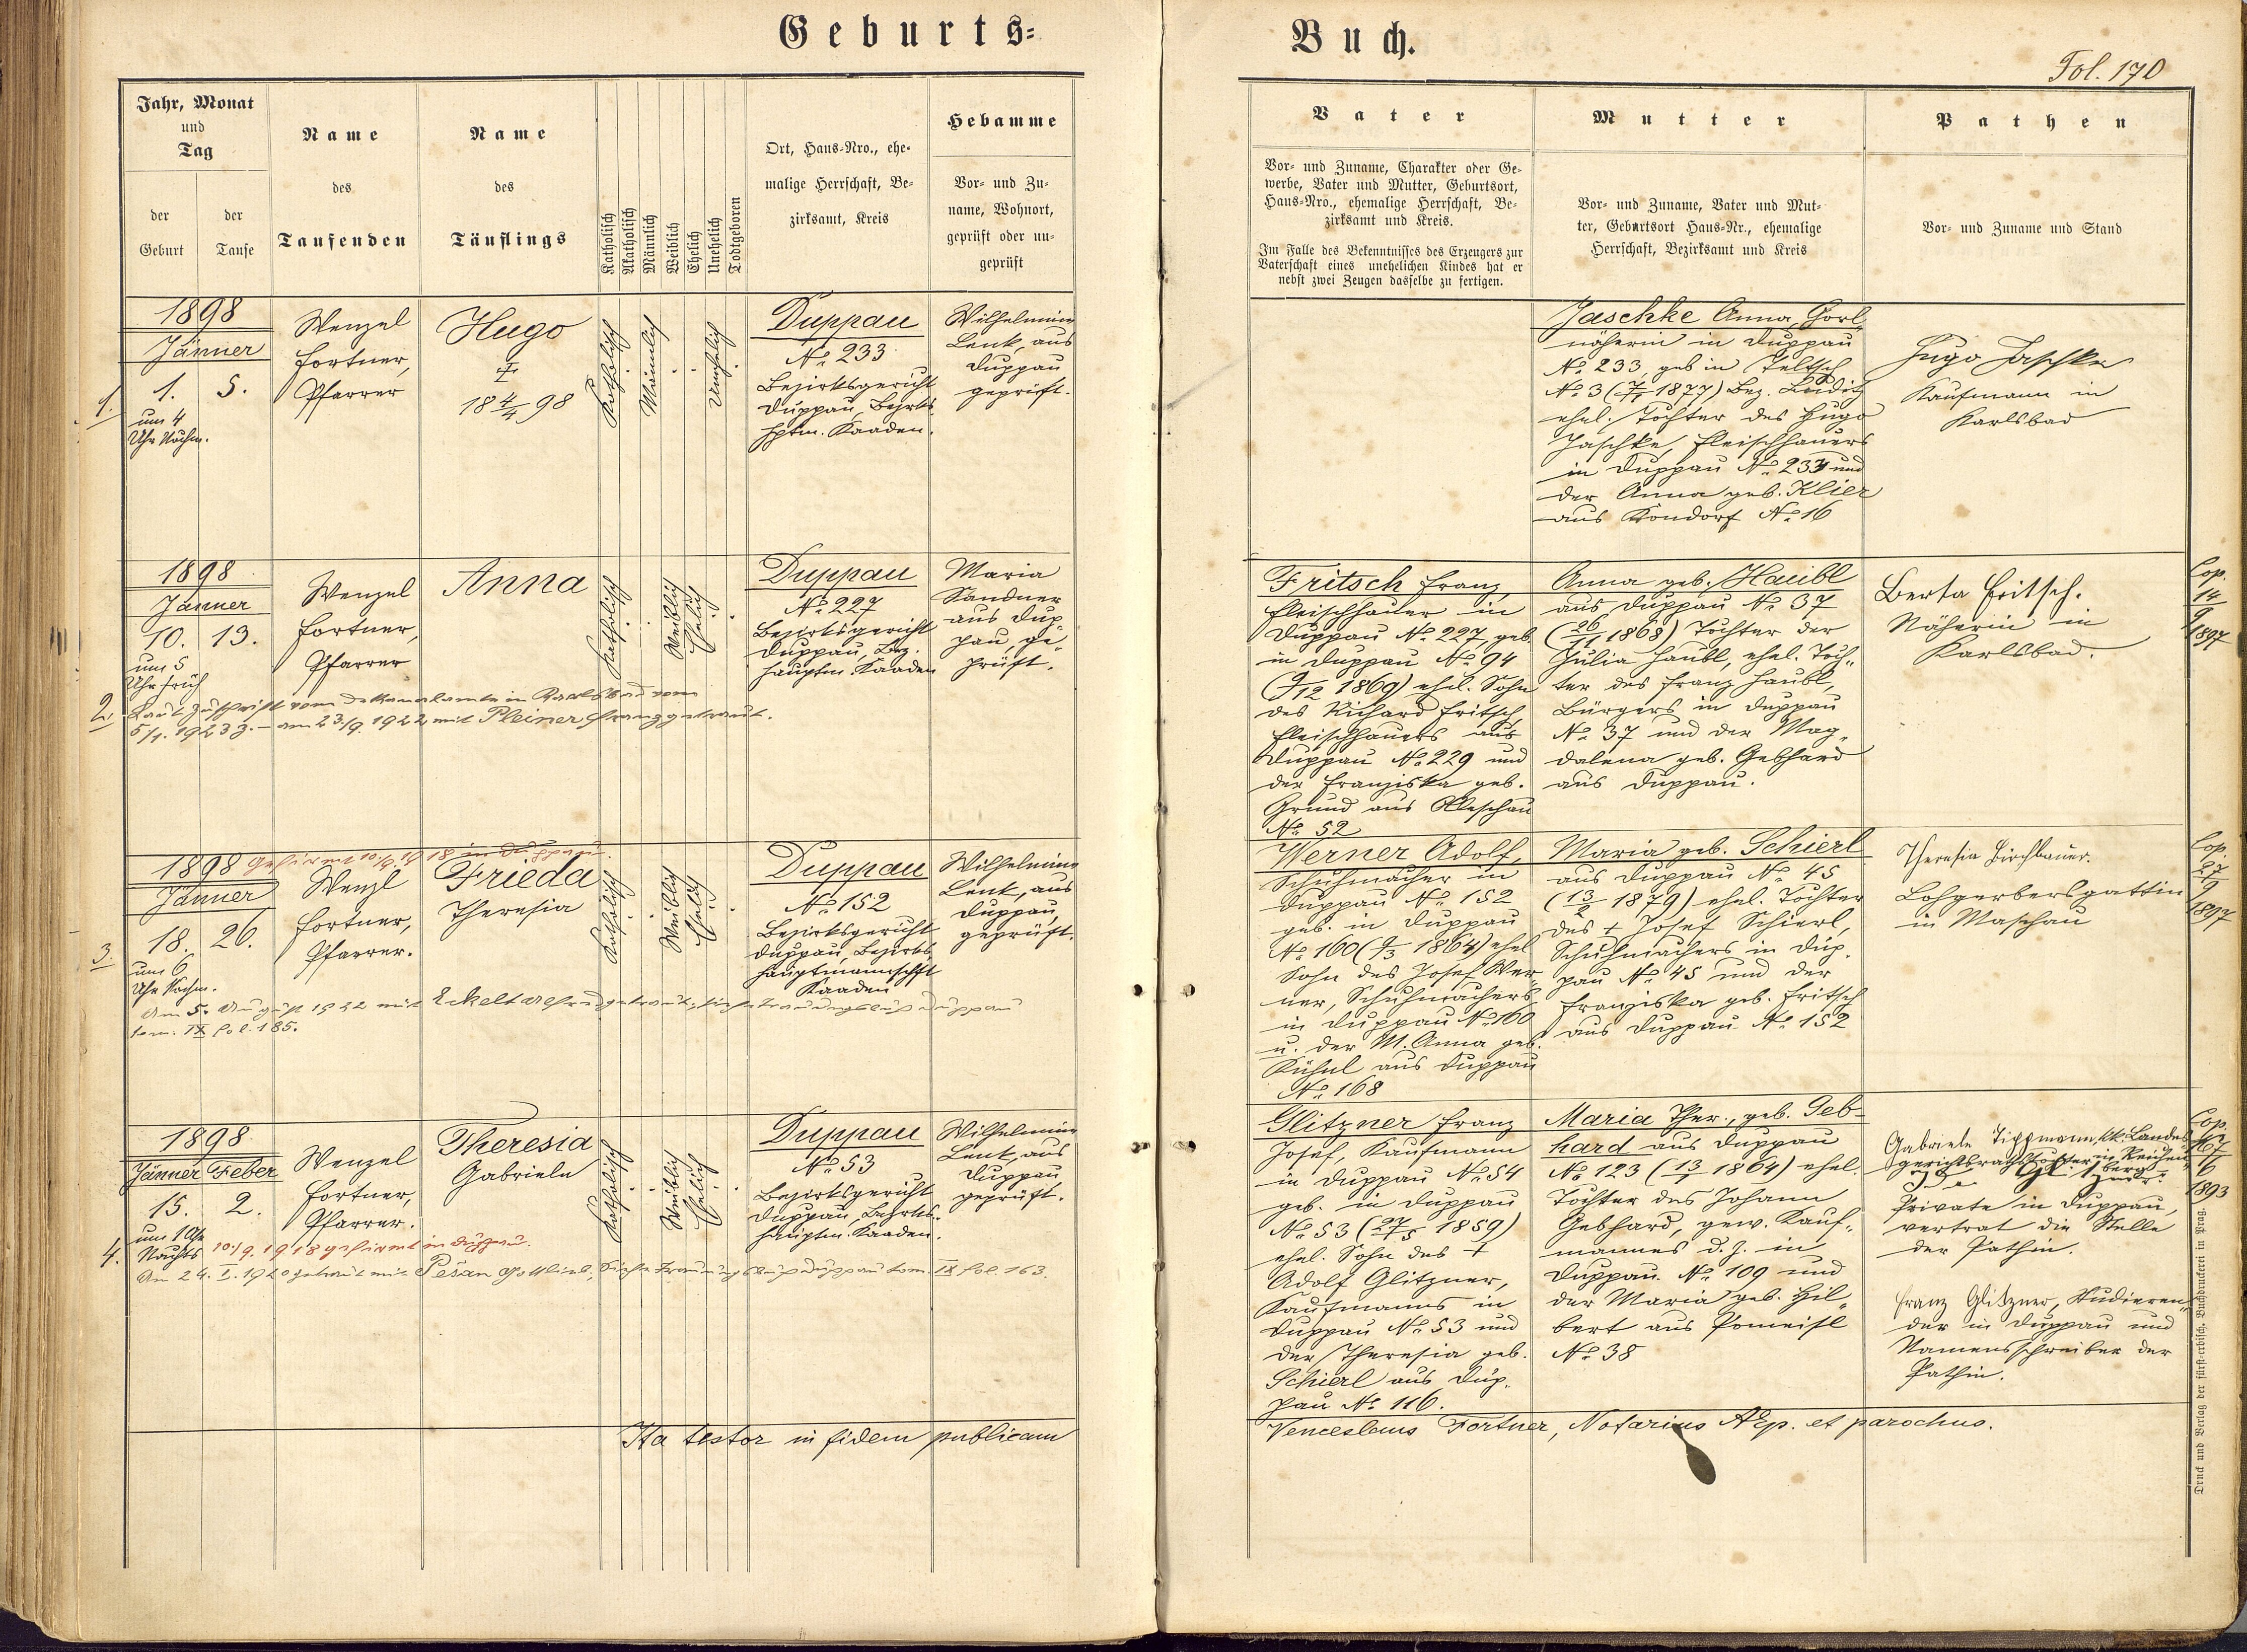 Geburts=
Buch.
Fol. 170
Jahr, Monat
und
Tag
der
Geburt
der
Taufe
Name
des
Taufenden
Name
des
Täuflings
Katholisch
Akatholisch
Männlich
Weiblich
Ehelich
Unehelich
Todtgeboren
Ort, Haus-Nro., ehe-
malige Herrschaft, Be-
zirksamt, Kreis
Hebamme
Vor- und Zu-
name, Wohnort,
geprüft oder un-
geprüft
Vater
Vor- und Zuname, Charakter oder Ge-
werbe, Vater und Mutter, Geburtsort,
Haus-Nro., ehemalige Herrschaft, Be-
zirksamt und Kreis.
Im Falle des Bekenntnisses des Erzeugers zur
Vaterschaft eines unehelichen Kindes hat er
nebst zwei Zeugen dasselbe zu fertigen.
Mutter
Vor- und Zuname, Vater und Mut-
ter, Geburtsort Haus-Nr., ehemalige
Herrschaft, Bezirksamt und Kreis
Pathen
Vor- und Zuname und Stand
1.
1898
Jänner
1. 5.
um 4
Uhr Nachm.
Wenzel
Fortner,
Pfarrer
Hugo
†
18 4/4 98
Katholisch
Männlich
Unehelich
Duppau
No 233
Bezirksgericht
Duppau, Bezirks
hptm. Kaaden.
Wilhelmine
Lenk, aus
Duppau
geprüft.
Jaschke Anna,
näherin in Duppau
No 233, geb in Teltsch
No 3 (7/1 1877) Bez. Luditz
ehel. Tochter des Hugo
Jaschke, Fleischhauers
in Duppau No 233 und
der Anna geb. Klier
aus Kondorf No 16
Hugo Jaschke
Kaufmann in
Karlsbad
2.
1898
Jänner
10. 13.
um 5
Uhr früh
Wenzel
Fortner,
Pfarrer
Anna
Katholisch
Weiblich
Ehelich
Duppau
No 227
Bezirksgericht
Duppau, Bez.
hauptm. Kaaden
Maria
Sandner
aus Dup-
pau ge-
prüft.
Laut Zuschrift vom Dekanalamte in Karlsbad vom
5/1. 1923 Z. – am 23./9. 1922 mit Pleiner Franz getraut.
Fritsch Franz,
Fleischhauer in
Duppau No 227, geb.
in Duppau No 94
(9/12 1869) ehel. Sohn
des Richard Fritsch,
Fleischhauers aus
Duppau No 229 und
der Franziska geb.
Grund aus Olleschau
No 52
Anna geb. Haubl
aus Duppau No 37
(26/11 1868) Tochter der
Julia Haubl, ehel. Toch-
ter des Franz Haubl,
Bürgers in Duppau
No 37 und der Mag-
dalena geb. Gebhard
aus Duppau.
Berta Fritsch.
Näherin in
Karlsbad.
Cop.
14/9
1897
3.
1898 Gefirmt 10/9. 1918 in Duppau.
Jänner
18. 26.
um 6
Uhr Nachm.
Wenzl
Fortner,
Pfarrer.
Frieda
Theresia
Katholisch
Weiblich
Ehelich
Duppau
No 152
Bezirksgericht
Duppau, Bezirks
hauptmannschft
Kaaden
Wilhelmine
Lenk, aus
Duppau,
geprüft.
Am 5. August 1922 mit Eckelt Alfred getraut; siehe Trauungsbuch Duppau
tom. IX fol. 185.
Werner Adolf,
Schuhmacher in
Duppau No 152
geb. in Duppau
No 160 1864) ehel.
Sohn des Josef Wer-
ner, Schuhmachers
in Duppau No 160
u. der M. Anna geb.
Kühnl aus Duppau
No 168
Maria geb. Schierl
aus Duppau No 45
(13/2 1879) ehel. Tochter
des † Josef Schierl,
Schuhmachers in Dup-
pau No 45 und der
Franziska geb. Fritsch
aus Duppau No 152
Theresia Kirchbauer.
Lohgerbersgattin
in Maschau
Cop.
27/9
1897
4.
1898
Jänner Feber
15. 2.
um 1 Uhr
Nachts
Wenzel
Fortner,
Pfarrer.
Theresia
Gabriela
Katholisch
Weiblich
Ehelich
Duppau
No 53
Bezirksgericht
Duppau, Bezirks-
hauptm. Kaaden.
Wilhelmine
Lenk, aus
Duppau
geprüft.
10./9. 1918 gefirmt in Duppau.
Am 24. I. 1920 getraut mit Pešan Gottlieb, siehe Trauungsbuch Duppau tom. IX fol. 163.
Glitzner Franz
Josef, Kaufmann
in Duppau No 54
geb. in Duppau
No 53 (27/5 1859)
ehel. Sohn des †
Adolf Glitzner,
Kaufmanns in
Duppau No 53 und
der Theresia geb.
Schierl aus Dup-
pau No 116.
Maria Ther., geb. Geb-
hard aus Duppau
No 123 (13/1 1864) ehel.
Tochter des Johann
Gebhard, gew. Kauf-
mannes d. Z. in
Duppau No 109 und
der Maria geb. Hil-
bert aus Pomeisl
No 38
Gabriele Tippmann, kk. Landes
gerichtsrathstochter in Reichen
berg
Private in Duppau,
vertrat die Stelle
der Pathin.
Franz Glitzner, Studieren-
der in Duppau und
Namensschreiber der
Pathin.
Cop.
1893
Ita testor in fidem publicam
Venceslaus Fortner, Notarius AEp. et parochus.
Druck und Verlag der fürst-erzbisch. Buchdruckerei in Prag.